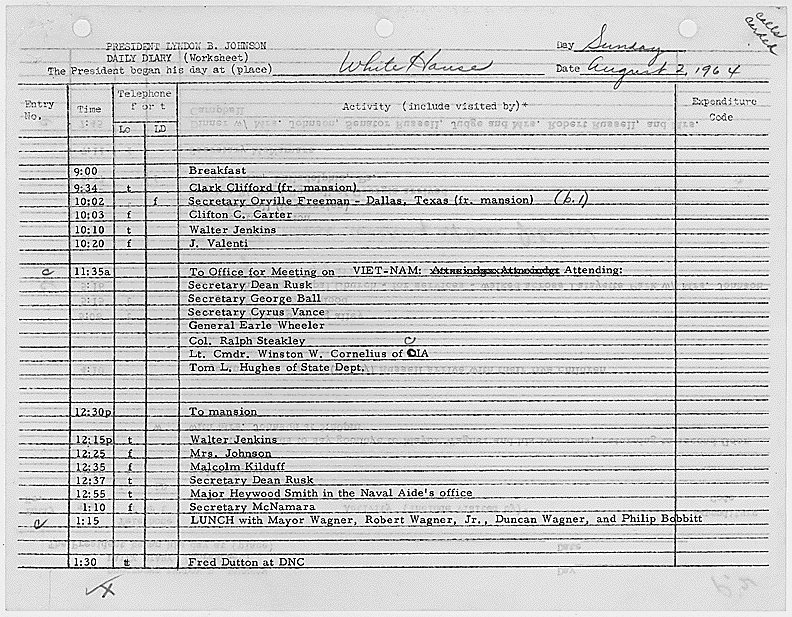 calls carded
PRESIDENT LYNDON B. JOHNSON
DAILY DIARY (Worksheet)
The President began his day at (place) White House
Day Sunday
Date August 2, 1964
Entry No. Time Telephone f or t Lo LD Activity (include visited by)* Expenditure Code
9:00 Breakfast
9:34 t Clark Clifford (fr. mansion)
10:02 f Secretary Orville Freeman - Dallas, Texas (fr. mansion) (b.1)
10:03 f Clifton C. Carter
10:10 t Walter Jenkins
10:20 f J. Valenti
c 11:35a To Office for Meeting on VIET-NAM: Attending:
Secretary Dean Rusk
Secretary George Ball
Secretary Cyrus Vance
General Earle Wheeler
Col. Ralph Steakley c
Lt. Cmdr. Winston W. Cornelius of CIA
Tom L. Hughes of State Dept.
12:30p To mansion
12:15p t Walter Jenkins
12:25 f Mrs. Johnson
12:35 f Malcolm Kilduff
12:37 t Secretary Dean Rusk
12:55 t Major Heywood Smith in the Naval Aide's office
1:10 f Secretary McNamara
c 1:15 LUNCH with Mayor Wagner, Robert Wagner, Jr., Duncan Wagner, and Philip Bobbitt
1:30 t Fred Dutton at DNC